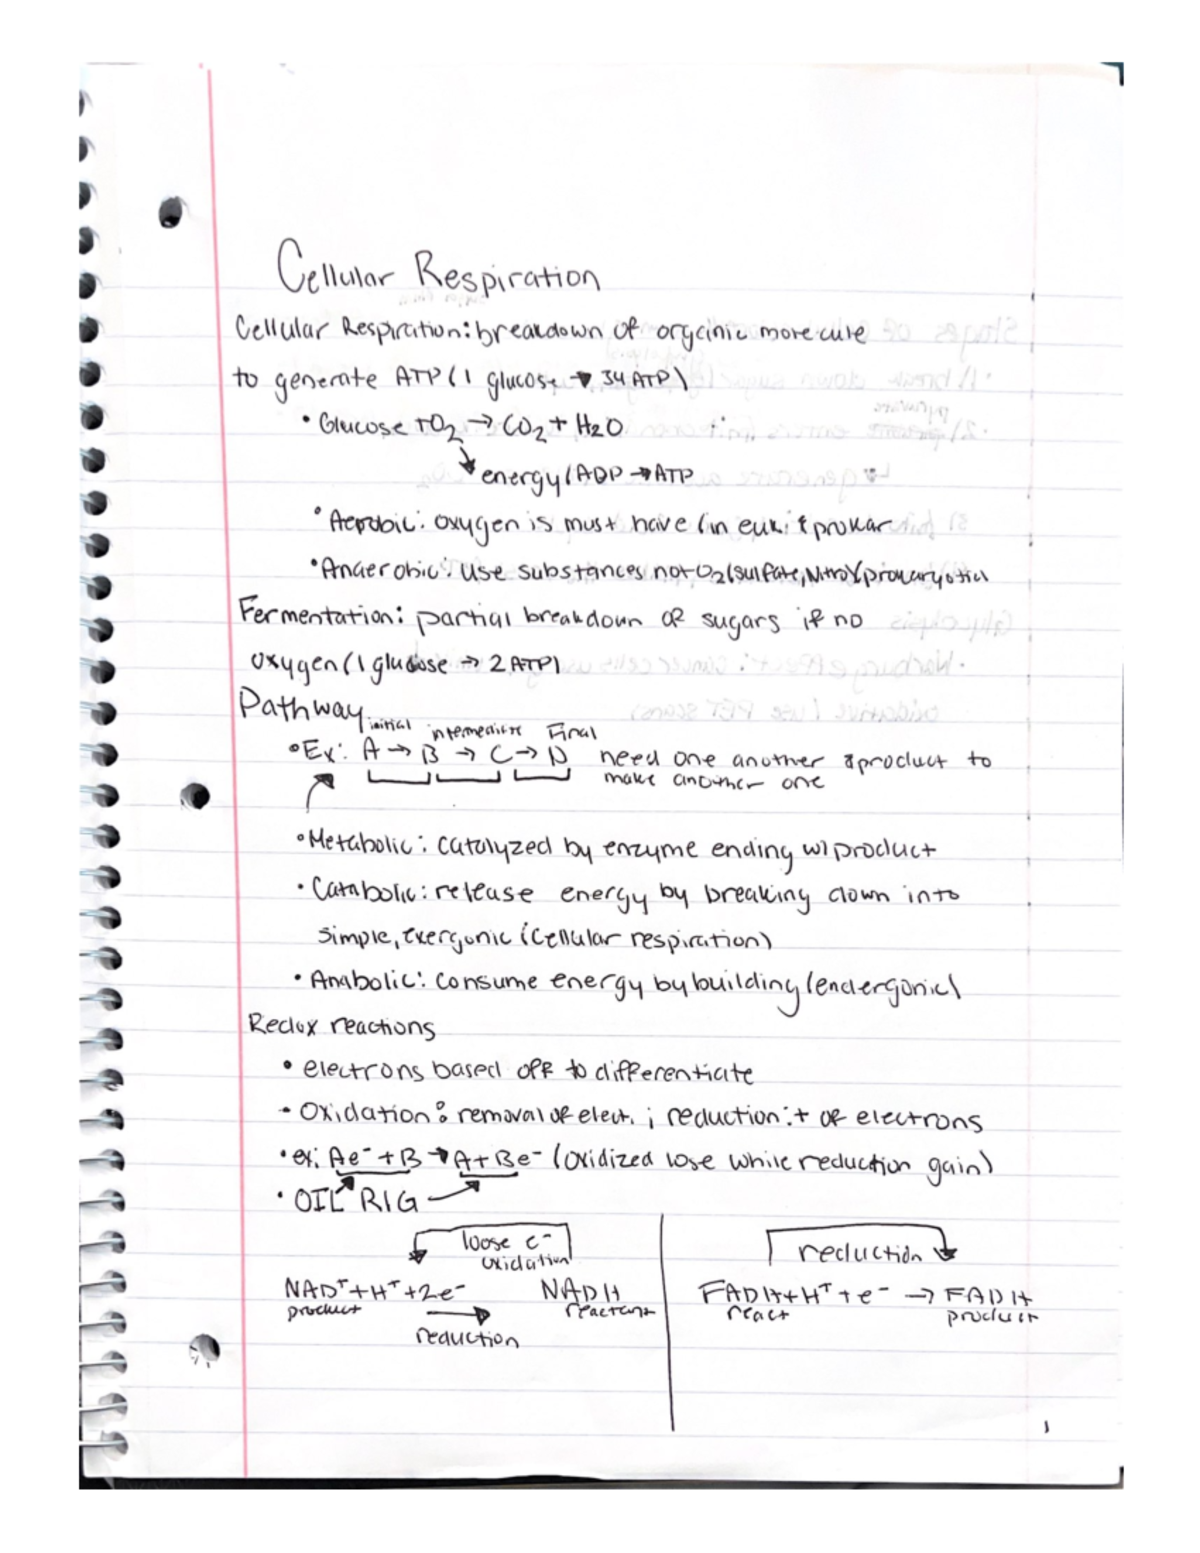 Cellular Respiration
Cellular Respiration: breakdown of organic molecule
to generate ATP (1 glucose → 34 ATP)
• Glucose + O2 → CO2 + H2O
↘ energy (ADP → ATP
• Aerobic: oxygen is must have (in euk. & prokar
• Anaerobic: use substances not O2 (sulfate, Nitro) (prokaryotic)
Fermentation: partial breakdown of sugars if no
oxygen (1 glucose → 2 ATP)
Pathway
initial intermediate Final
• Ex: A → B → C → D need one another product to
make another one
• Metabolic: catalyzed by enzyme ending w/ product
• Catabolic: release energy by breaking down into
simple, exergonic (cellular respiration)
• Anabolic: consume energy by building (endergonic)
Redox reactions
• electrons based off to differentiate
- Oxidation: removal of elect. ; reduction: + of electrons
• ex: Ae⁻ + B → A + Be⁻ (oxidized lose while reduction gain)
• OIL RIG
loose e⁻
oxidation
NAD⁺ + H⁺ + 2e⁻ NADH
product reactant
reduction
reduction
FADH + H⁺ + e⁻ → FADH
react product
1